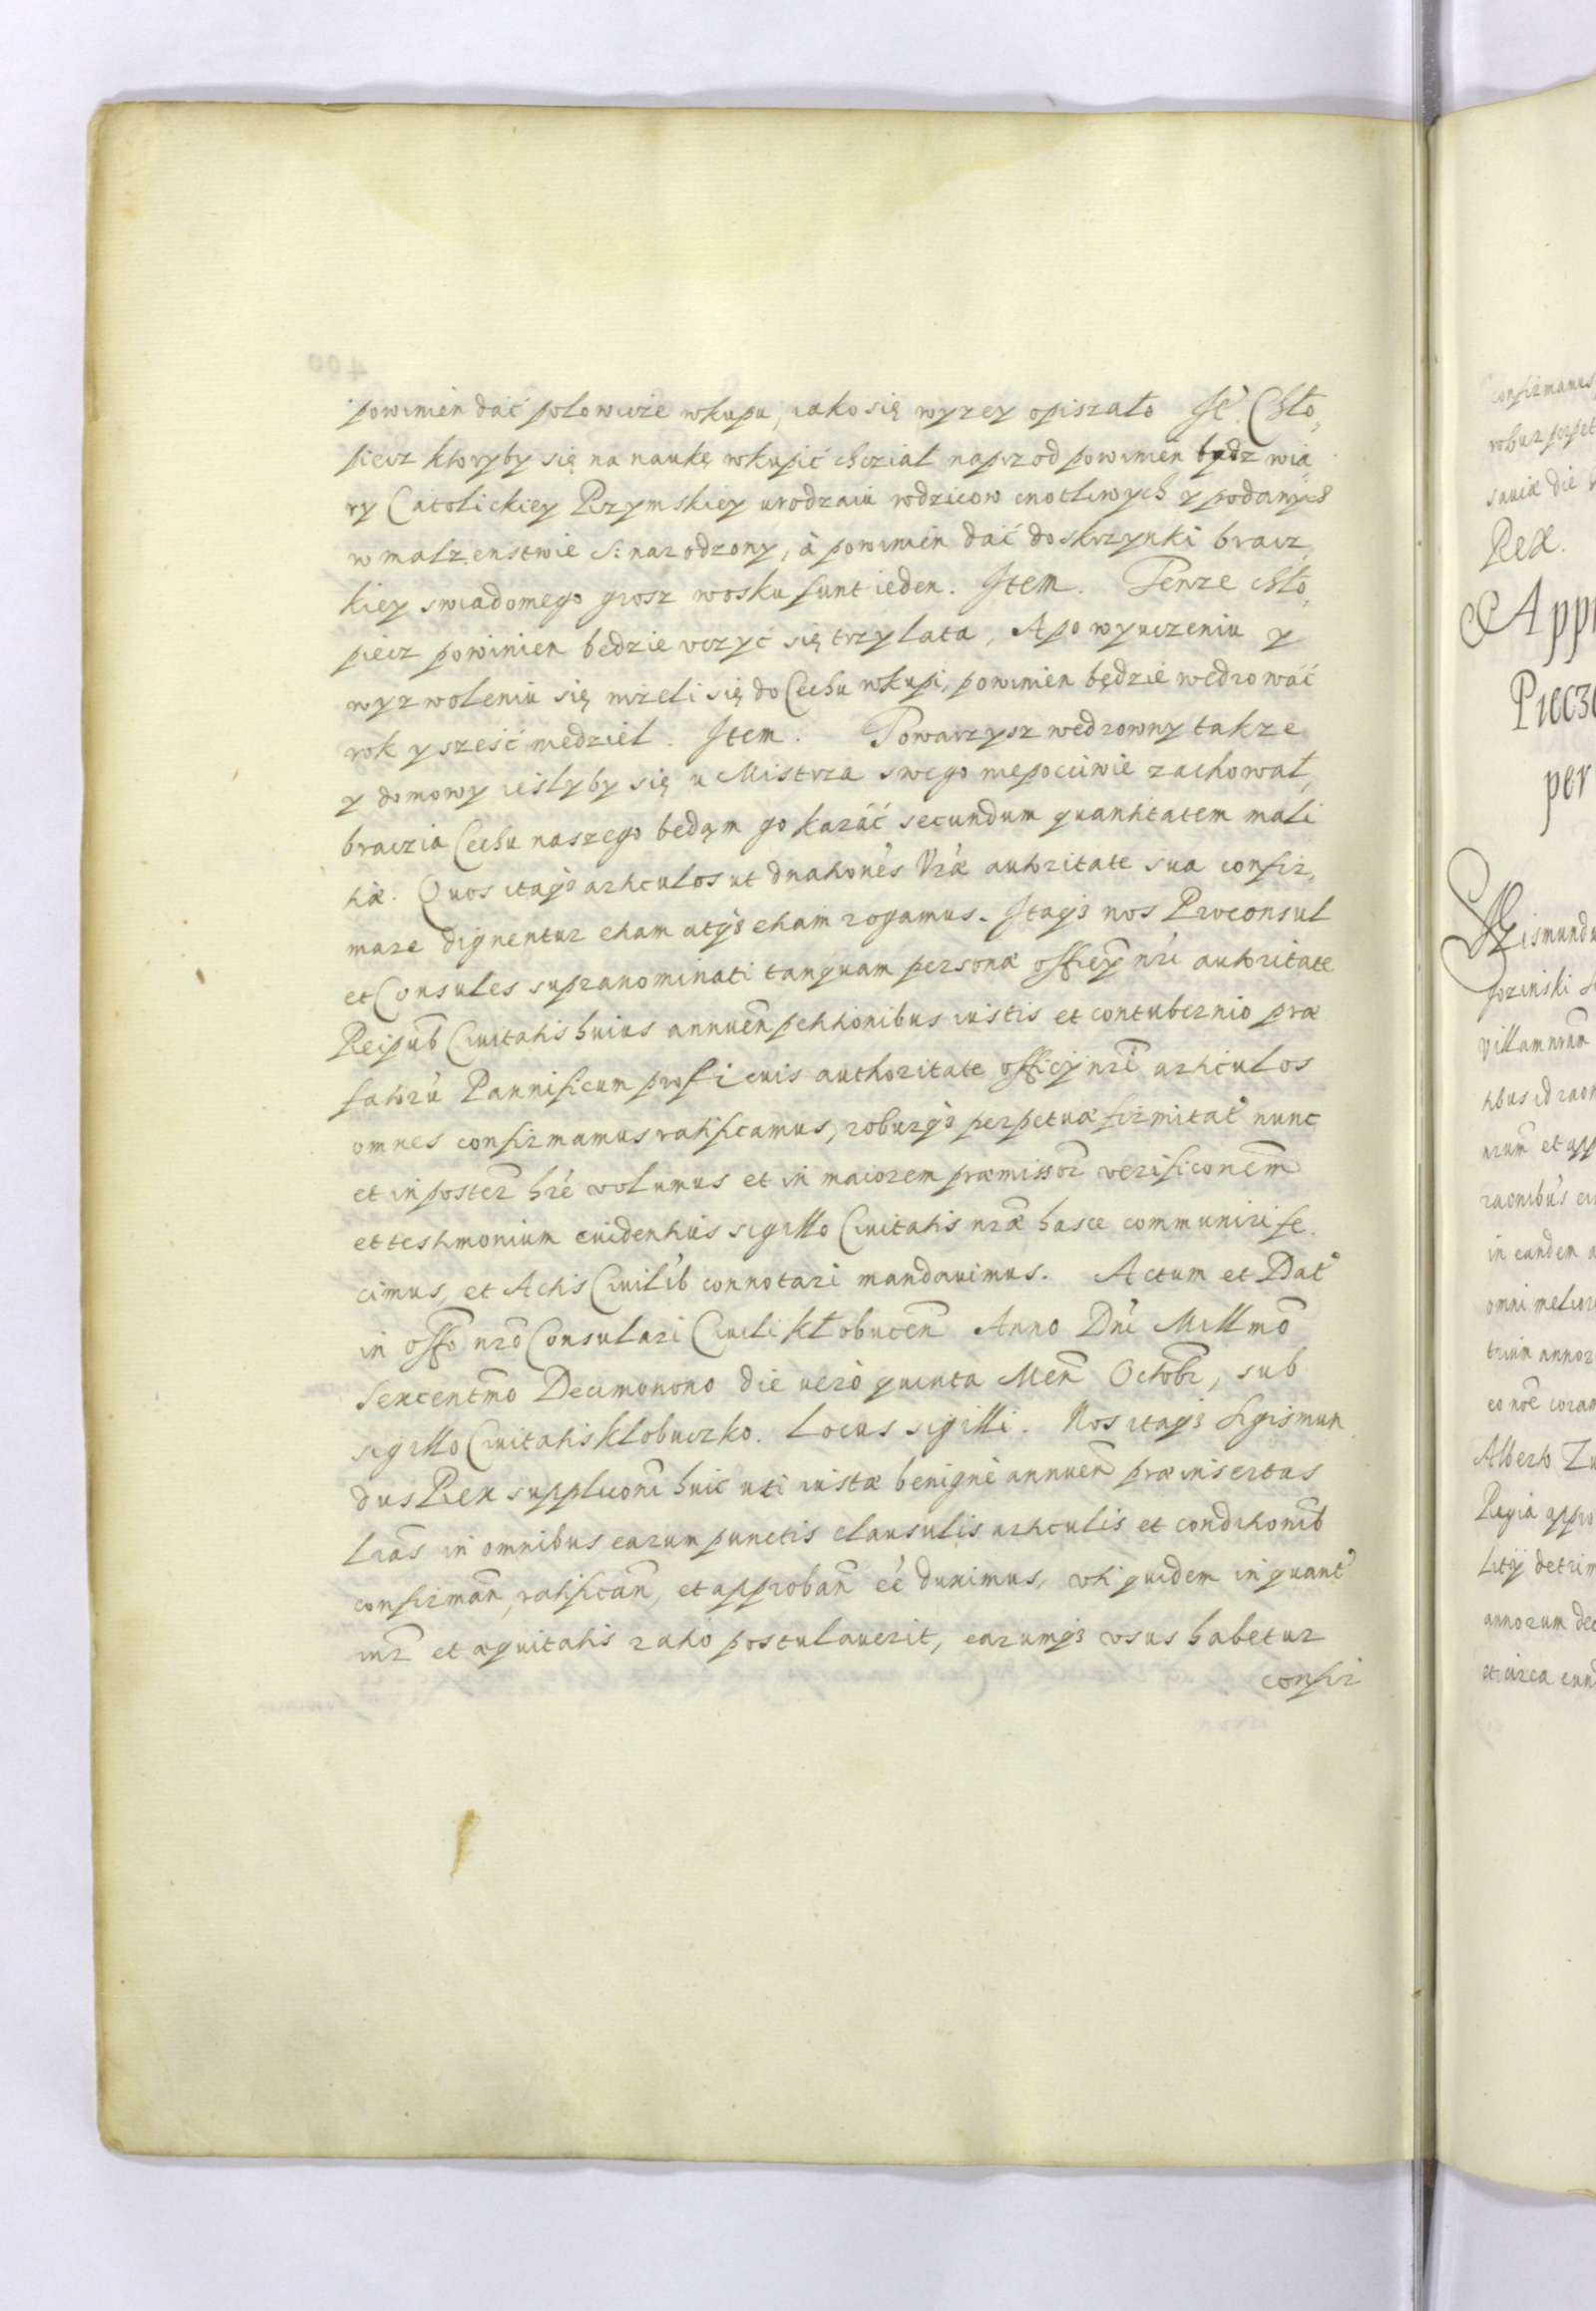 powinien dać połowicże wkupu, iako się wyzey opiszało Itē. Chło,
piecz ktoryby się na naukę wkupić chcział naprzod powinien bydz wia
ry Catolickiey Rzymskiey urodzaiu rodzicow cnotliwych y podanych
w małzenstwie s. narodzony, à powinien dać do skrzynki bracz,
kiey swiadomego grosz wosku funt ieden. Item. Tenze chło,
piecz powinien bedzie uczyć się trzy lata, A po wyuczeniu y
wyzwoleniu się niżeli się do Cechu wkupi, powinien będzie wedrować
rok y sześć niedziel. Item. Towarzysz wedrowny takze
y domowy iesliby się u Mistrza swego niepoćciwie zachował,
braczia Cechu naszego bedąm go karáć secundum quantitatem mali
tiæ. Quos itaq3 articulos ut dnationés Vræ autoritate sua confir,
mare dignentur etiam atq3 etiam rogamus. Itaq3 nos Proconsul
et Consules supranominati tanquam personæ officÿ nri autoritate
Reipub̃ Civitatis huius annueñ petitionibus iustis et contubernio præ
fatorũ Pannificum proficuis authoritate officÿ nri articulos
omnes confirmamus ratificamus, roburq3 perpetuæ firmitat̃ nunc
et in poster̃ hře volumus et in maiorem præmissor̃ verificonem̃
et testimonium evidentius sigillo Civitatis nræ hasce communiri fe
cimus, et Actis Civilib̃ connotari mandavimus. Actum et Dat̃
in offo nro Consulari Civili Kłobuceñ Anno Dñi Millm̃o
Sexcentm̃o Decimonono die vero quinta Meñ Octobr̃, sub
sigillo Civitatis Klobuczko. Locus sigilli. Nos itaq3 Sigismun
dus Rex supplicoñi huic uti iustæ benigne annueñ præinsertas
lr̃as in omnibus earum punctis clausulis articulis et conditionib̃
confirmañ, ratificañ, et approbañ ee̋ duximus, uti quidem inquant̃
iur̃ et æquitatis ratio postulaverit, earumq3 usus habetur
confir